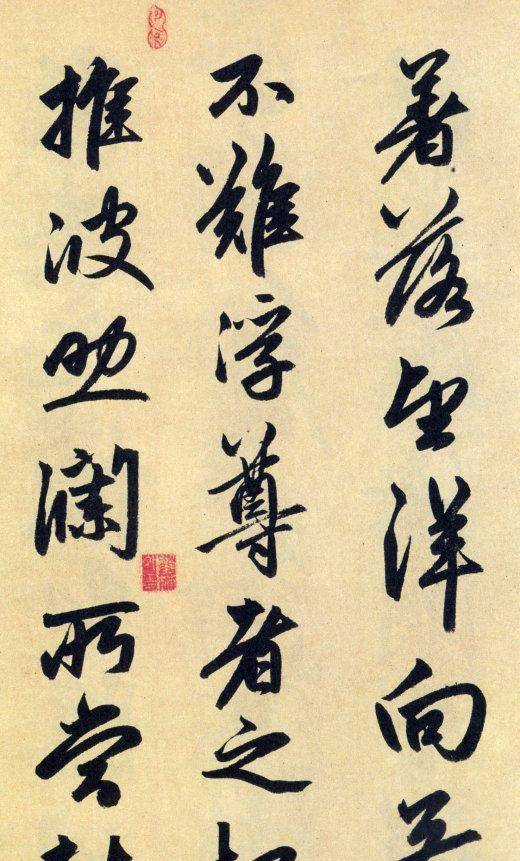 著落望洋向
不難浮尊者之
推波助瀾所嘗